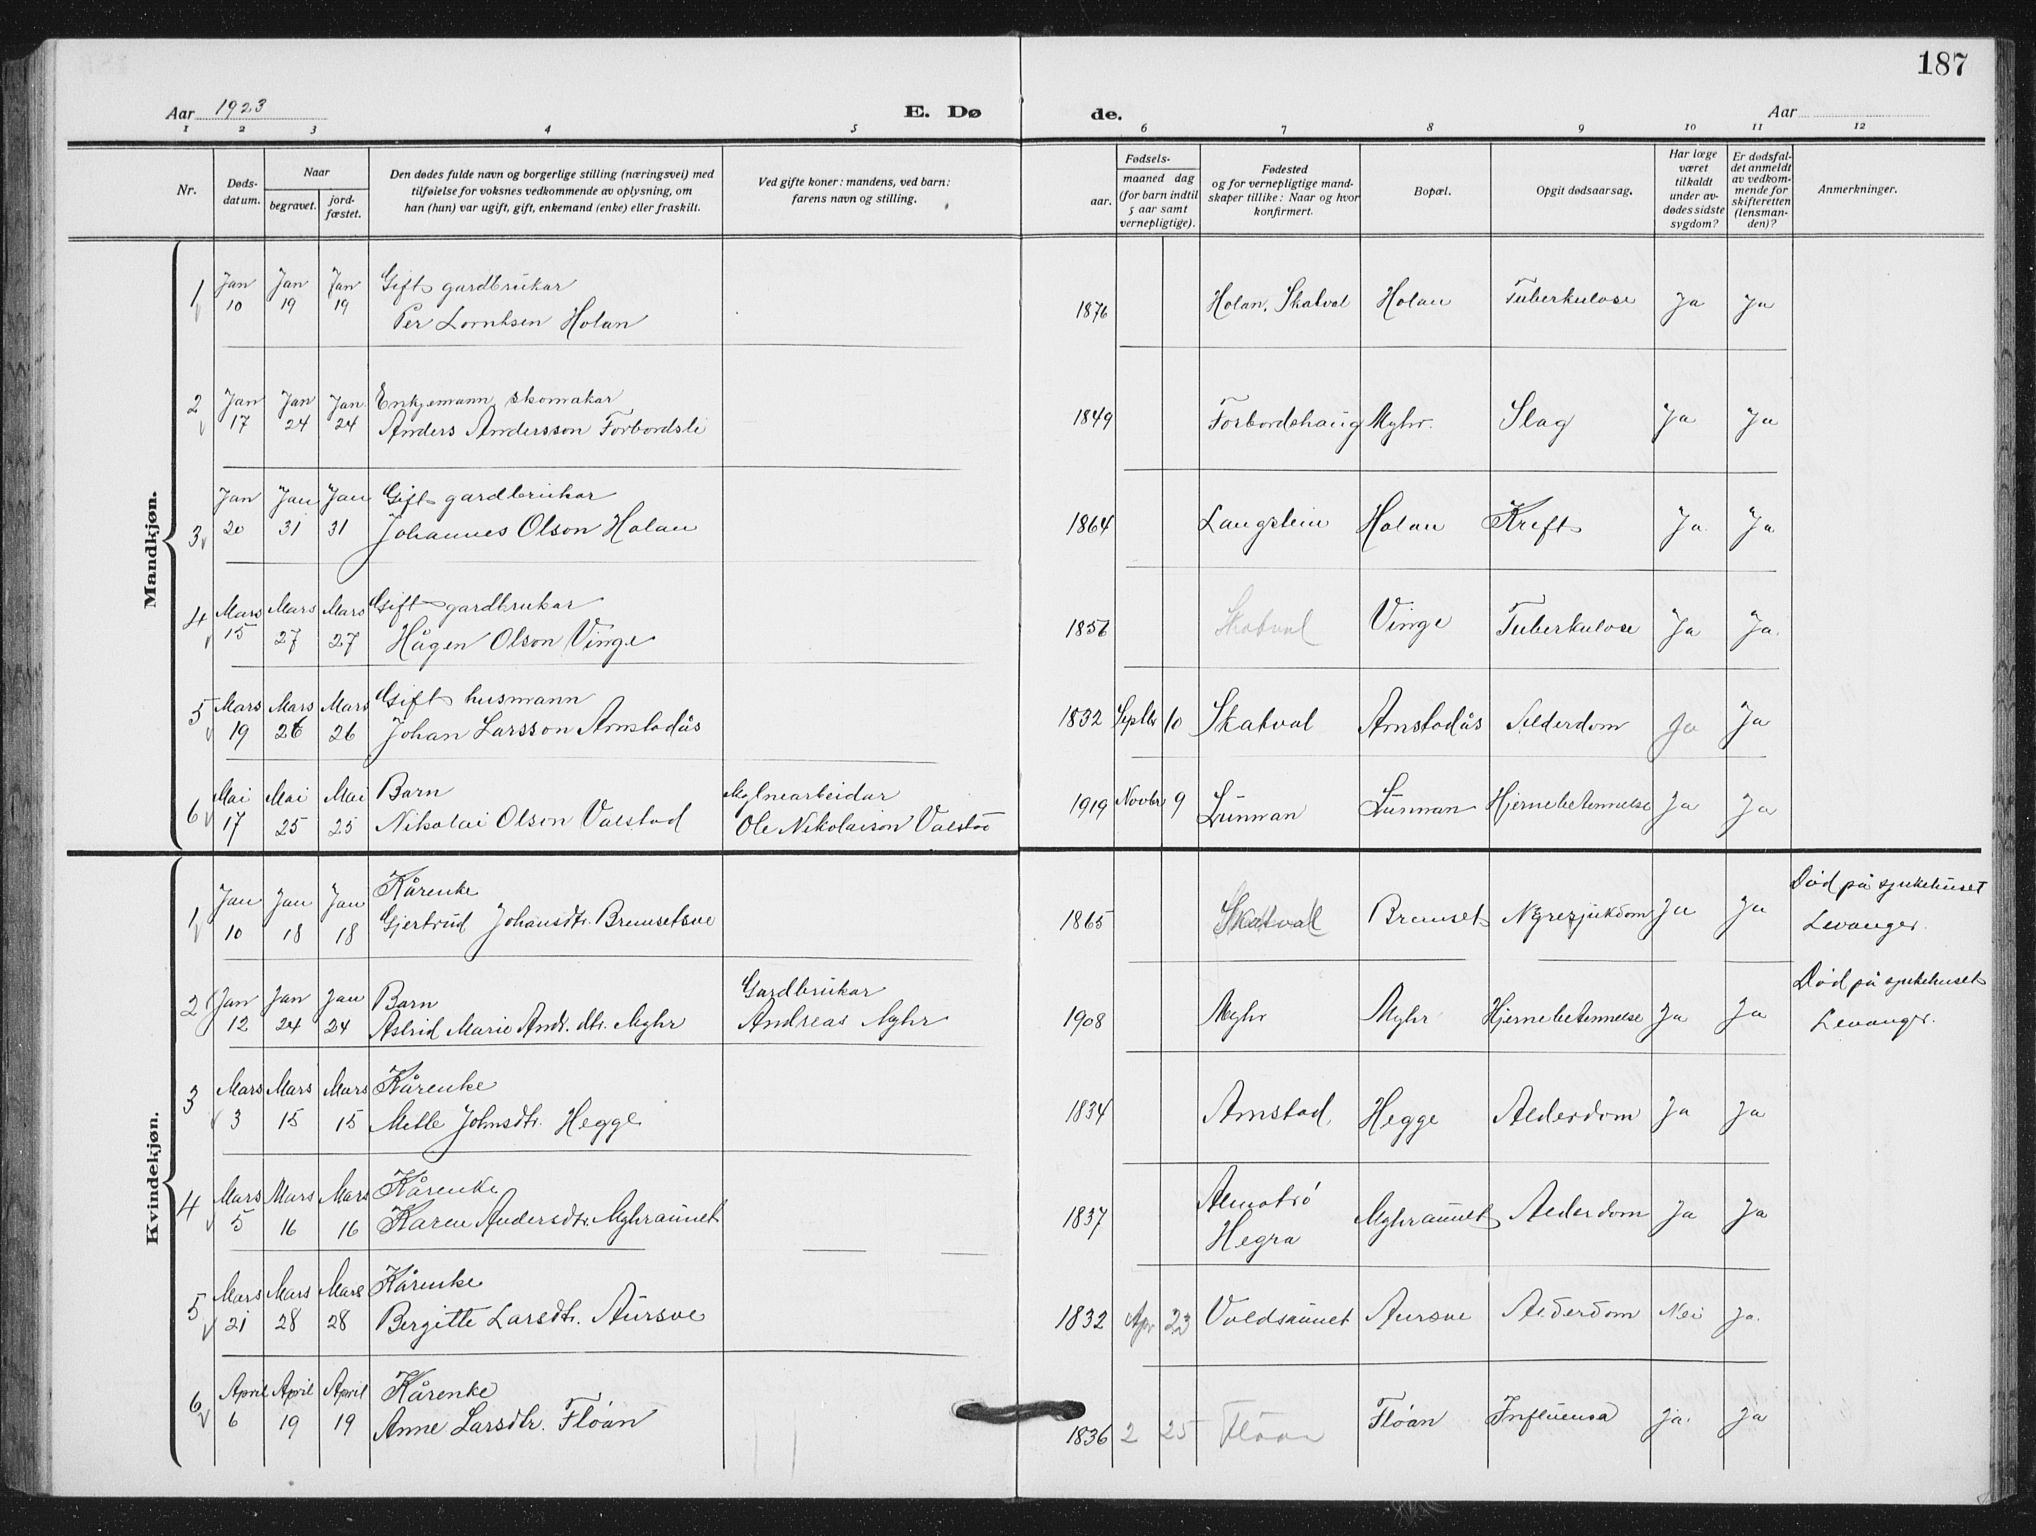 187
Aar 1923
E. Dø de.
Aar
1 2 3 4 5 6 7 8 9 10 11 12
Nr.
Døds-
datum.
Naar
begravet.
jord-
fæstet.
Den dødes fulde navn og borgerlige stilling (næringsvei) med
tilføielse for voksnes vedkommende av oplysning, om
han (hun) var ugift, gift, enkemand (enke) eller fraskilt.
Ved gifte koner: mandens, ved barn:
farens navn og stilling.
aar.
Fødsels-
maaned dag
(for barn indtil
5 aar samt
vernepligtige).
Fødested
og for vernepligtige mand-
skaper tillike: Naar og hvor
konfirmert.
Bopæl.
Opgit dødsaarsag.
Har læge
været
tilkaldt
under av-
dødes sidste
sygdom?
Er dødsfal-
det anmeldt
av vedkom-
mende for
skifteretten
(lensman-
den)?
Anmerkninger.
Mandkjøn.
1 Jan Jan Jan Gift gardbrukar
10 19 19 Per Lorntsen Holan 1876 Holan, Skatval Holan Tuberkulose Ja Ja
2 Jan Jan Jan Enkjemann, skomakar
17 24 24 Anders Andersson Forbordsli 1849 Forbordshaug Myhr. Slag Ja Ja
3 Jan Jan Jan Gift gardbrukar
20 31 31 Johannes Olson Holan 1864 Langstein Holan Kreft Ja Ja
4 Mars Mars Mars Gift gardbrukar
15 27 27 Hågen Olson Vinge 1856 Skatval Vinge Tuberkulose Ja Ja.
5 Mars Mars Mars Gift husmann
19 26 26 Johan Larsson Arnstadås 1832 Septbr 10 Skatval Arnstadås Alderdom Ja Ja
6 Mai Mai Mai Barn Mylnearbeidar
17 25 25 Nikolai Olson Valstad Ole Nikolaison Valstad 1919 Novbr 9 Lunman Lunman Hjernebetennelse Ja Ja
Kvindekjøn.
1 Jan Jan Jan Kårenke Død på sjukehuset
10 18 18 Gjertrud Johansdtr. Bremsetsve 1865 Skatval Bremset Nyresjukdom Ja Ja Levanger.
2 Jan Jan Jan Barn Gardbrukar Død på sjukehuset
12 24 24 Astrid Marie Andr. dtr. Myhr Andreas Myhr 1908 Myhr Myhr Hjernebetennelse Ja Ja Levanger.
3 Mars Mars Mars Kårenke
3 15 15 Mette Johnsdtr. Hegge 1834 Arnstad Hegge Alderdom Ja Ja
4 Mars Mars Mars Kårenke
5 16 16 Karen Andersdtr. Myhraunet 1837 Hegra Myhraunet Alderdom Ja Ja
5 Mars Mars Mars Kårenke
21 28 28 Bergitte Larsdtr. Aursve 1832 Apr 23 Voldsaunet Aursve Alderdom Nei Ja.
6 April April April Kårenke
6 19 19 Anne Larsdtr. Flóan 1836 2 25 Flóan Flóan Influensa Ja. Ja